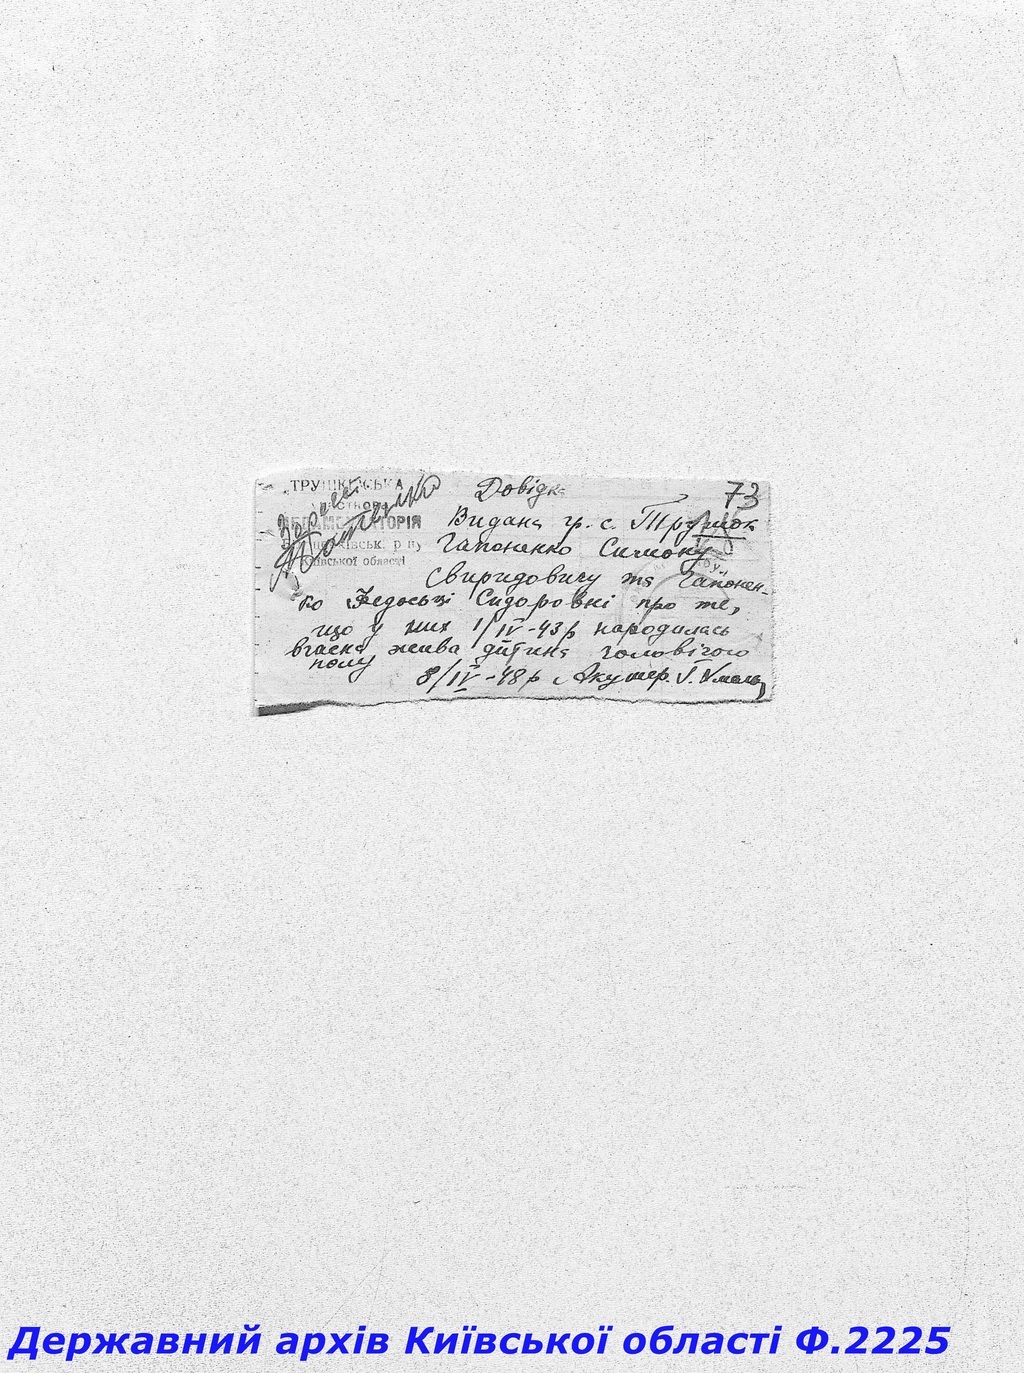 73
ТРУШКІВСЬКА
АМБУЛАТОРІЯ
Київської області
Довідка
Видана гр. с. Трушок
Гапоненко Симону
Свиридовичу та Гапонен-
ко Федосьці Сидоровні про те,
що у них 1/IV-43р народилась
вчасна жива дитина чоловічого
полу
8/IV-48р Акушер.
Державний архів Київської області Ф.2225